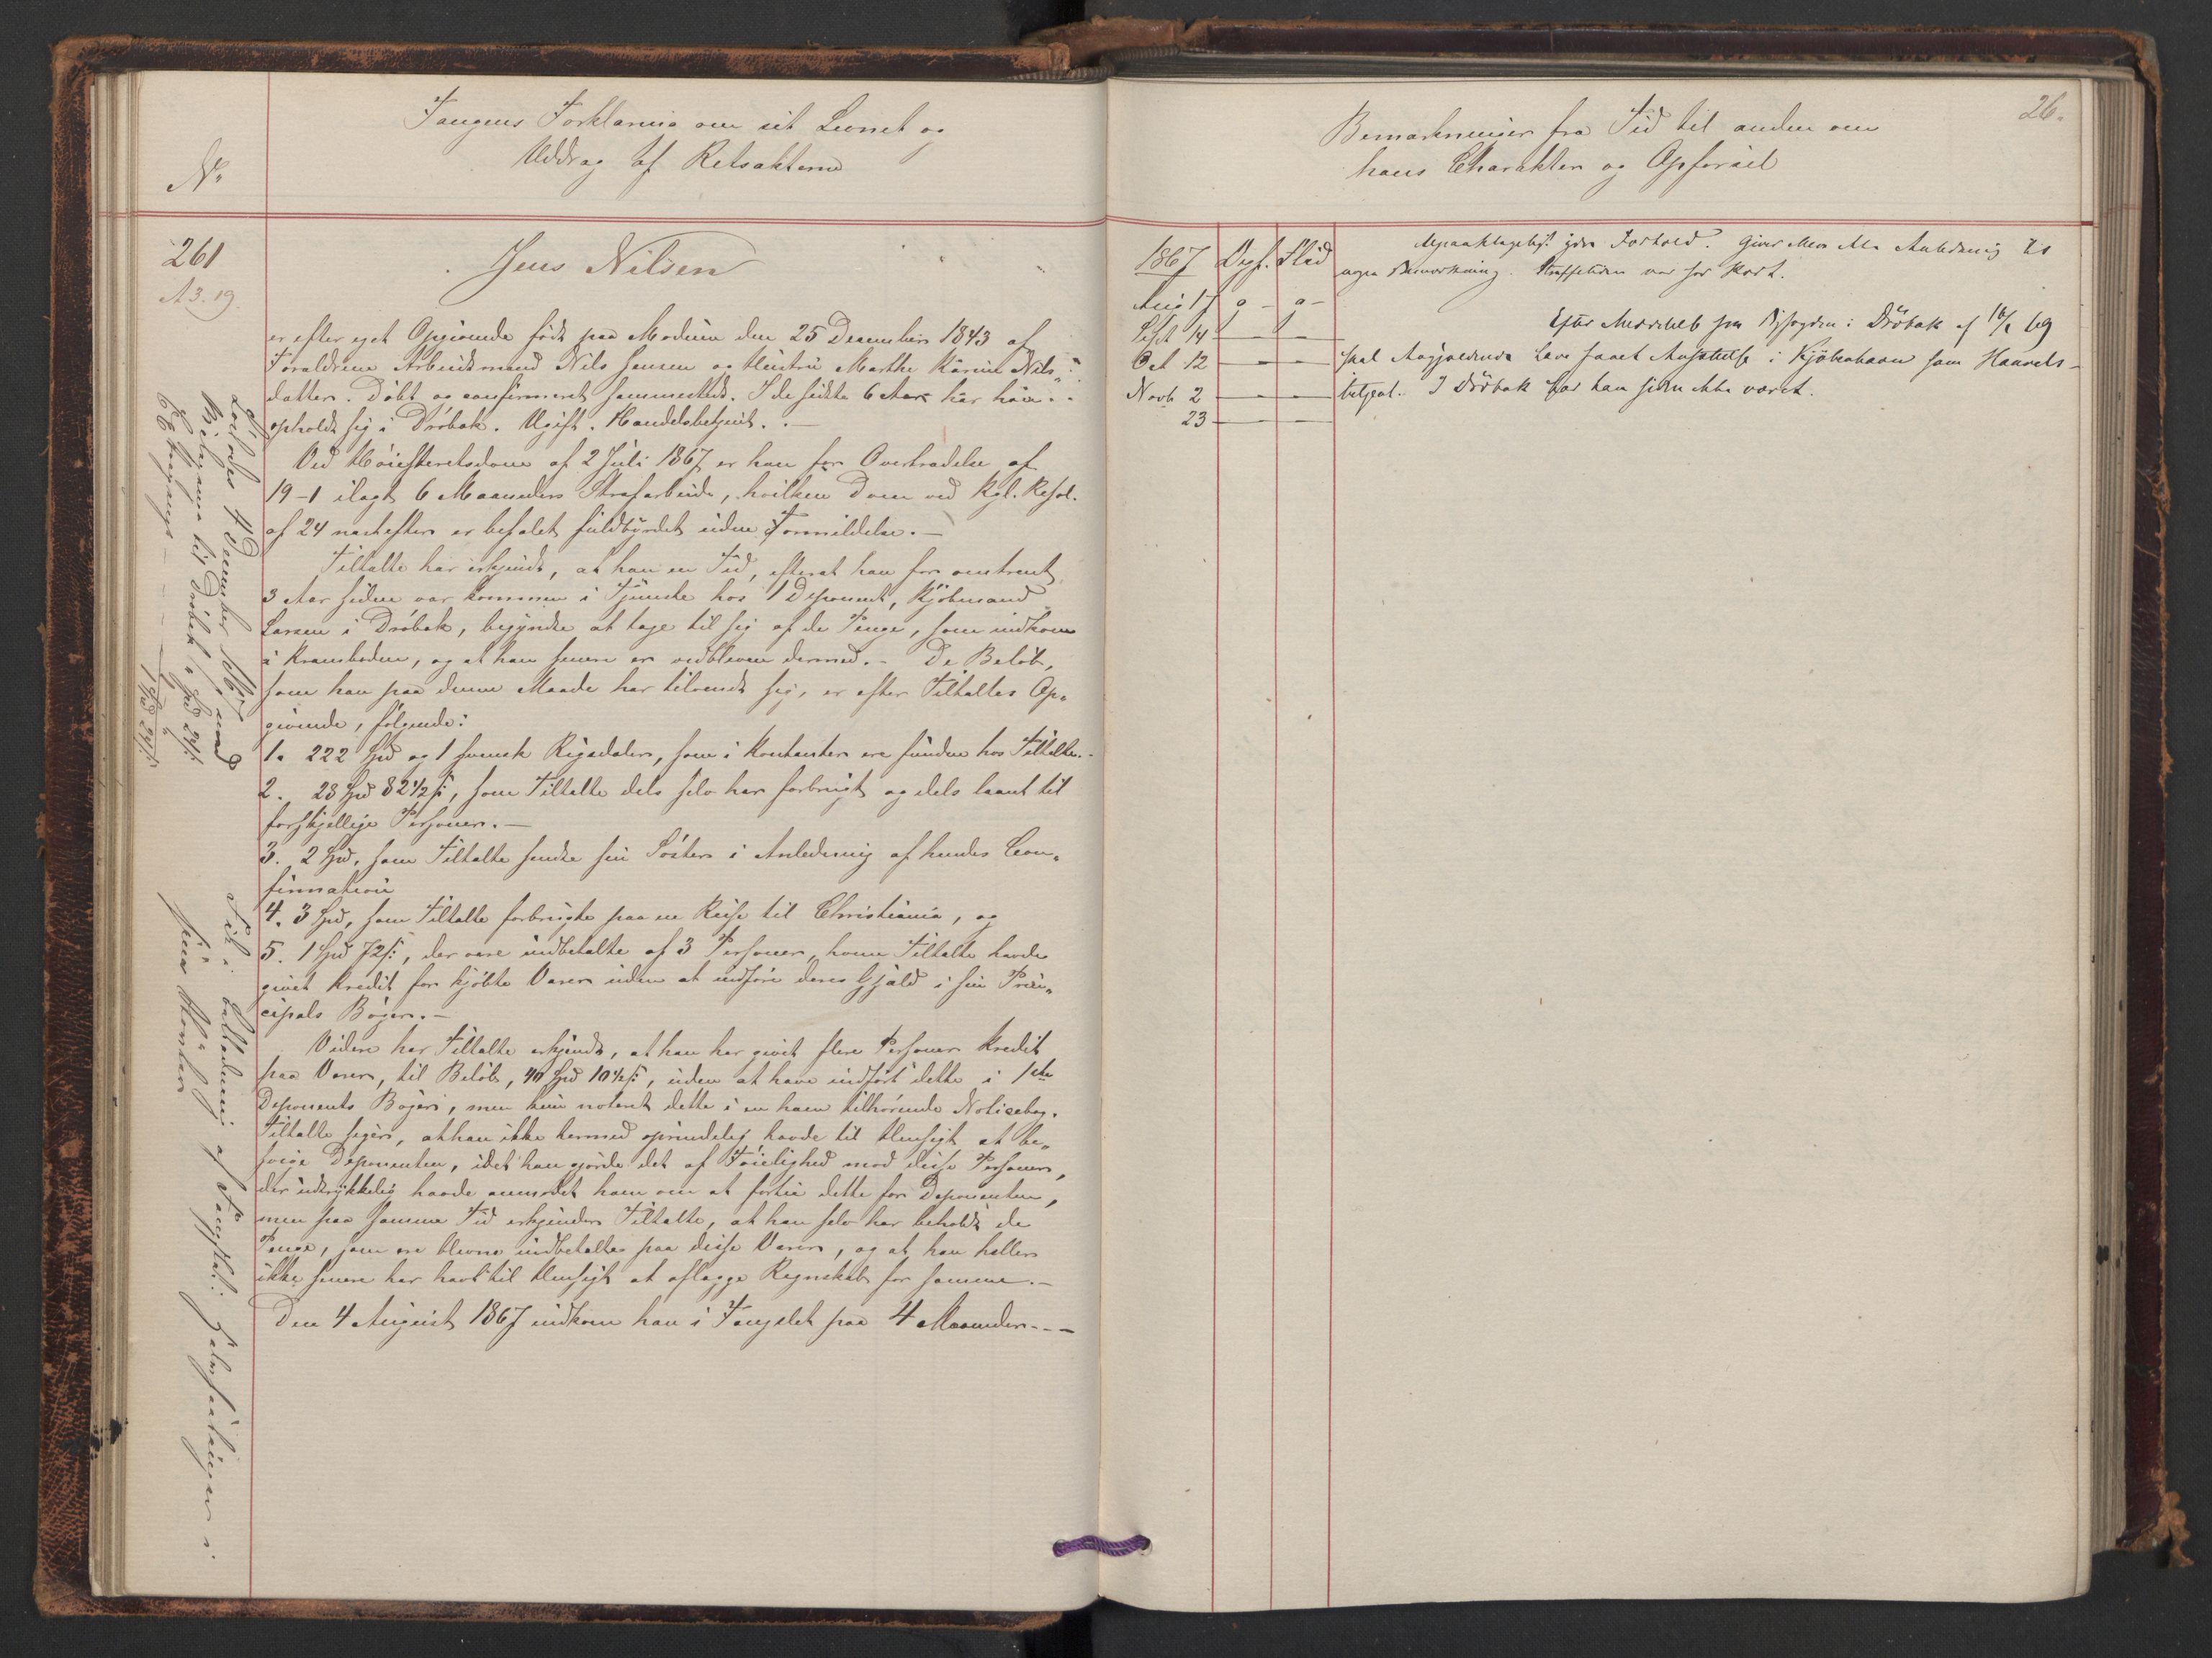 Fangens Forklaring om sit Levnet og
Uddrag af Retsakterne
No
261
A 3. 19.
Jens Nilsen
er efter eget Opgivende født paa Modum den 25 December 1843 af
Forældrene Arbeidsmand Nils Jensen og Hustru Marthe Karine Nils-
datter. Døbt og confirmeret sammesteds. I de sidste 6 Aar har han
opholdt sig i Drøbak. Ugift. Handelsbetjent. —
Ved Høiesteretsdom af 2 Juli 1867 er han for Overtrædelse af
19-1 ilagt 6 Maaneders Strafarbeide, hvilken Dom ved Kgl. Resol.
af 24 næstefter er befalet fuldbyrdet uden Formildelse. —
Tiltalte har erkjendt, at han en Tid, efterat han for omtrent
3 Aar siden var kommen i Tjeneste hos 1 Deponent, Kjøbmand
Larsen i Drøbak, begyndte at tage til sig af de Penge, som indkom
i Kramboden, og at han senere er vedbleven dermed. – De Beløb,
som han paa denne Maade har tilvendt sig, er efter Tiltaltes Op-
givende, følgende:
1. 222 Spd og 1 svensk Rigsdaler, som i Kontanter ere fundne hos Tiltalte.
2. 23 Spd 82 1/2 ß, som Tiltalte dels selv har forbrugt og dels laant til
forskjellige Personer. —
3. 2 Spd, som Tiltalte sendte sin Søster i Anledning af hendes Con-
firmation
4. 3 Spd, som Tiltalte forbrugte paa en Reise til Christiania, og
5. 1 Spd 72 ß, der vare indbetalte af 3 Personer, hvem Tiltalte havde
givet Kredit for kjøbte Varer uden at indføre deres Gjæld i sin Prin-
cipals Bøger. —
Videre har Tiltalte erkjendt, at han har givet flere Personer Kredit
paa Varer, til Beløb, 40 Spd 10 1/2 ß, uden at have indført dette i 1ste
Deponents Bøger, men kun noteret dette i en ham tilhørende Noticebog.
Tiltalte siger, at han ikke hermed oprindelig havde til Hensigt at be-
svige Deponenten, idet han gjorde det af Føielighed mod disse Personer,
der udtrykkelig havde anmodet ham om at fortie dette for Deponenten,
men paa samme Tid erkjender Tiltalte, at han selv har beholdt de
Penge, som ere blevne indbetalte paa disse Varer, og at han heller
ikke senere har havt til Hensigt at aflægge Regnskab for samme. —
Den 4 August 1867 indkom han i Fængslet paa 4 Maaneder - - -
Løslodes 4 December 1867 med
Fik i Anledning af
26.
Bemærkninger fra Tid til anden om
hans Charakter og Opførsel
1867 Opf. Flid
Aug 17 g - g -
Sept 14 — —
Oct 12 — —
Novb 2 — —
23 — —
Upaaklageligt ydre Forhold. Giver ikke Anledning til
nogen Bemærkning. Straffetiden var for kort.
Efter Meddelelse fra Byfogden i Drøbak af
skal Angjældende have faaet Ansættelse i Kjøbenhavn som Handels-
betjent. I Drøbak har han siden ikke været.